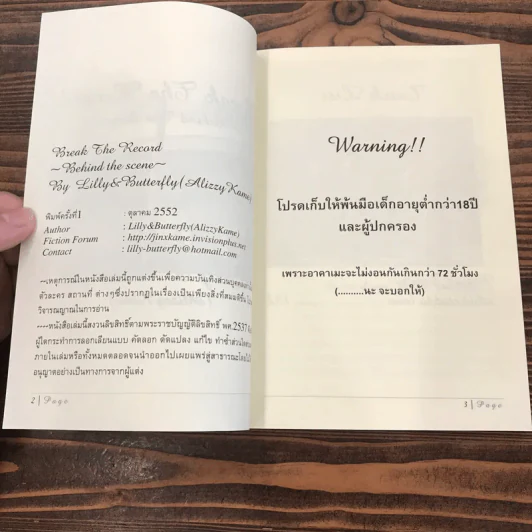 Break The Record
~Behind the scene~
By Lilly&Butterfly(Alizzy Kame)
พิมพ์ครั้งที่1 : ตุลาคม 2552
Author : Lilly&Butterfly(AlizzyKame)
Fiction Forum : http://jinxkame.invisionplus.net
Contact : lilly-butterfly@hotmail.com
---เหตุการณ์ในหนังสือเล่มนี้ถูกแต่งขึ้นเพื่อความบันเทิงส่วนบุคคล
ตัวละคร สถานที่ ต่างๆซึ่งปรากฏในเรื่องเป็นเพียงสิ่งที่สมมติขึ้น
วิจารณญาณในการอ่าน
----หนังสือเล่มนี้สงวนลิขสิทธิ์ตามพระราชบัญญัติลิขสิทธิ์ พศ.2537
ผู้ใดกระทำการลอกเลียนแบบ คัดลอก ดัดแปลง แก้ไข ทำซ้ำส่วนใด
ภายในเล่มหรือทั้งหมดตลอดจนนำออกไปเผยแพร่สู่สาธารณะโดย
อนุญาตอย่างเป็นทางการจากผู้แต่ง
2 | Page
Warning!!
โปรดเก็บให้พ้นมือเด็กอายุต่ำกว่า18ปี
และผู้ปกครอง
เพราะอาคาเมะจะไม่งอนกันเกินกว่า 72 ชั่วโมง
(..........นะ จะบอกให้)
3 | Page